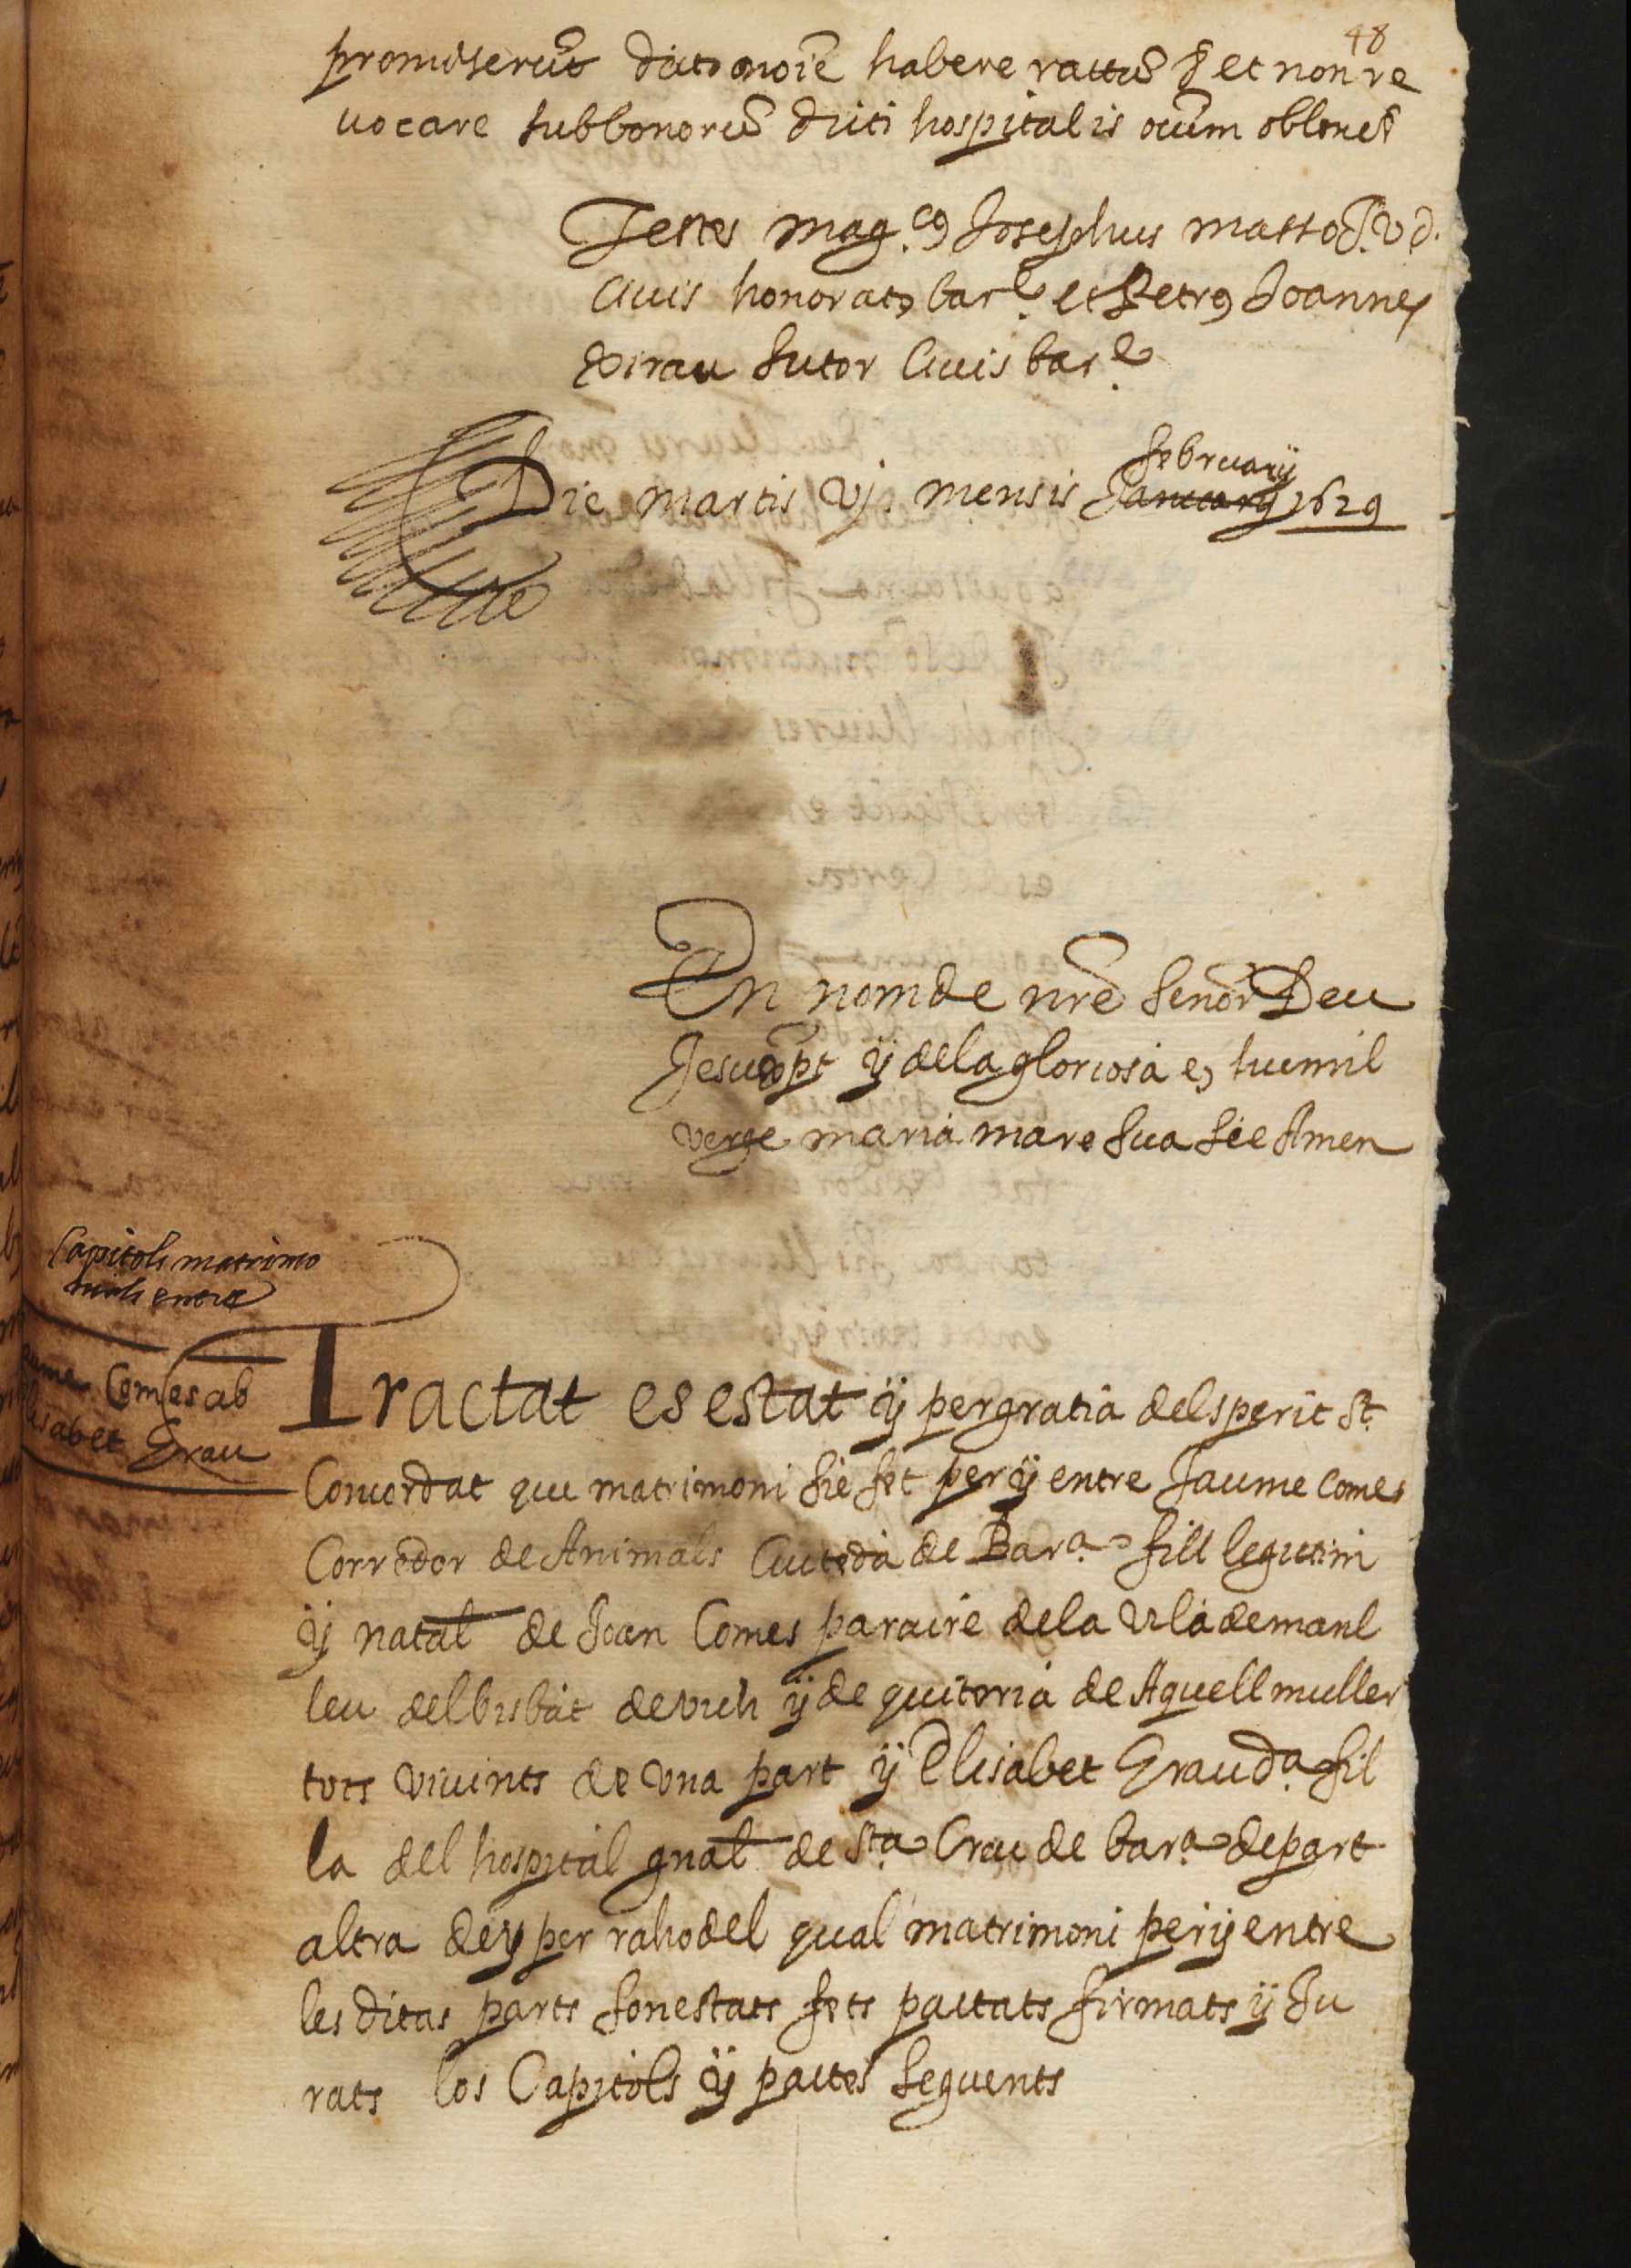 48
promiserūt dicto noīe habere rattū & et non re
uocare sub bonorū dicti hospitalis oīum oblone &
Testes mag.cꝯ Josephus Masto J. V. d.
Ciuis honoratꝯ bar.e et Petrꝯ Joannes
Xirau sutor Ciuis bar.e
februarij
Die martis vj. mensis Januarij 1629
En nom de nr̄e Señor Deu
Jesuxp̄t ÿ de la gloriosa e, humil
verge maria mare sua sie Amen
Capitols matrimo
nials entre
Jaume Comes ab
Elisabet Grau
Tractat es estat ÿ per gratia del sperit St.
Concordat que matrimoni sie fet per ÿ entre Jaume Comes
Corredor de Animals Ciutedà de Bar.a fill legittim
ÿ natal de Joan Comes paraire de la Vila de manl
leu del bisbat de vich ÿ de quiteria de Aquell muller
tots viuints de vna part ÿ Elisabet Grau d.a fil
la del hospital gn̄al de Sta. Creu de bar.a de part
altra de ÿ per raho del qual matrimoni per ÿ entre
les ditas parts son estats fets pactats firmats ÿ Ju
rats los Capitols ÿ pactes seguents